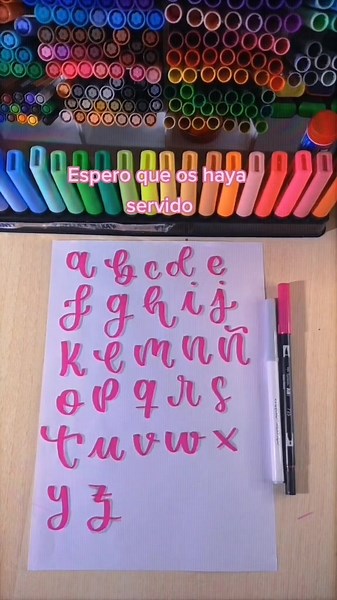 Espero que os haya
servido
a b c d e
f g h i j
k l m n ñ
o p q r s
t u v w x
y z